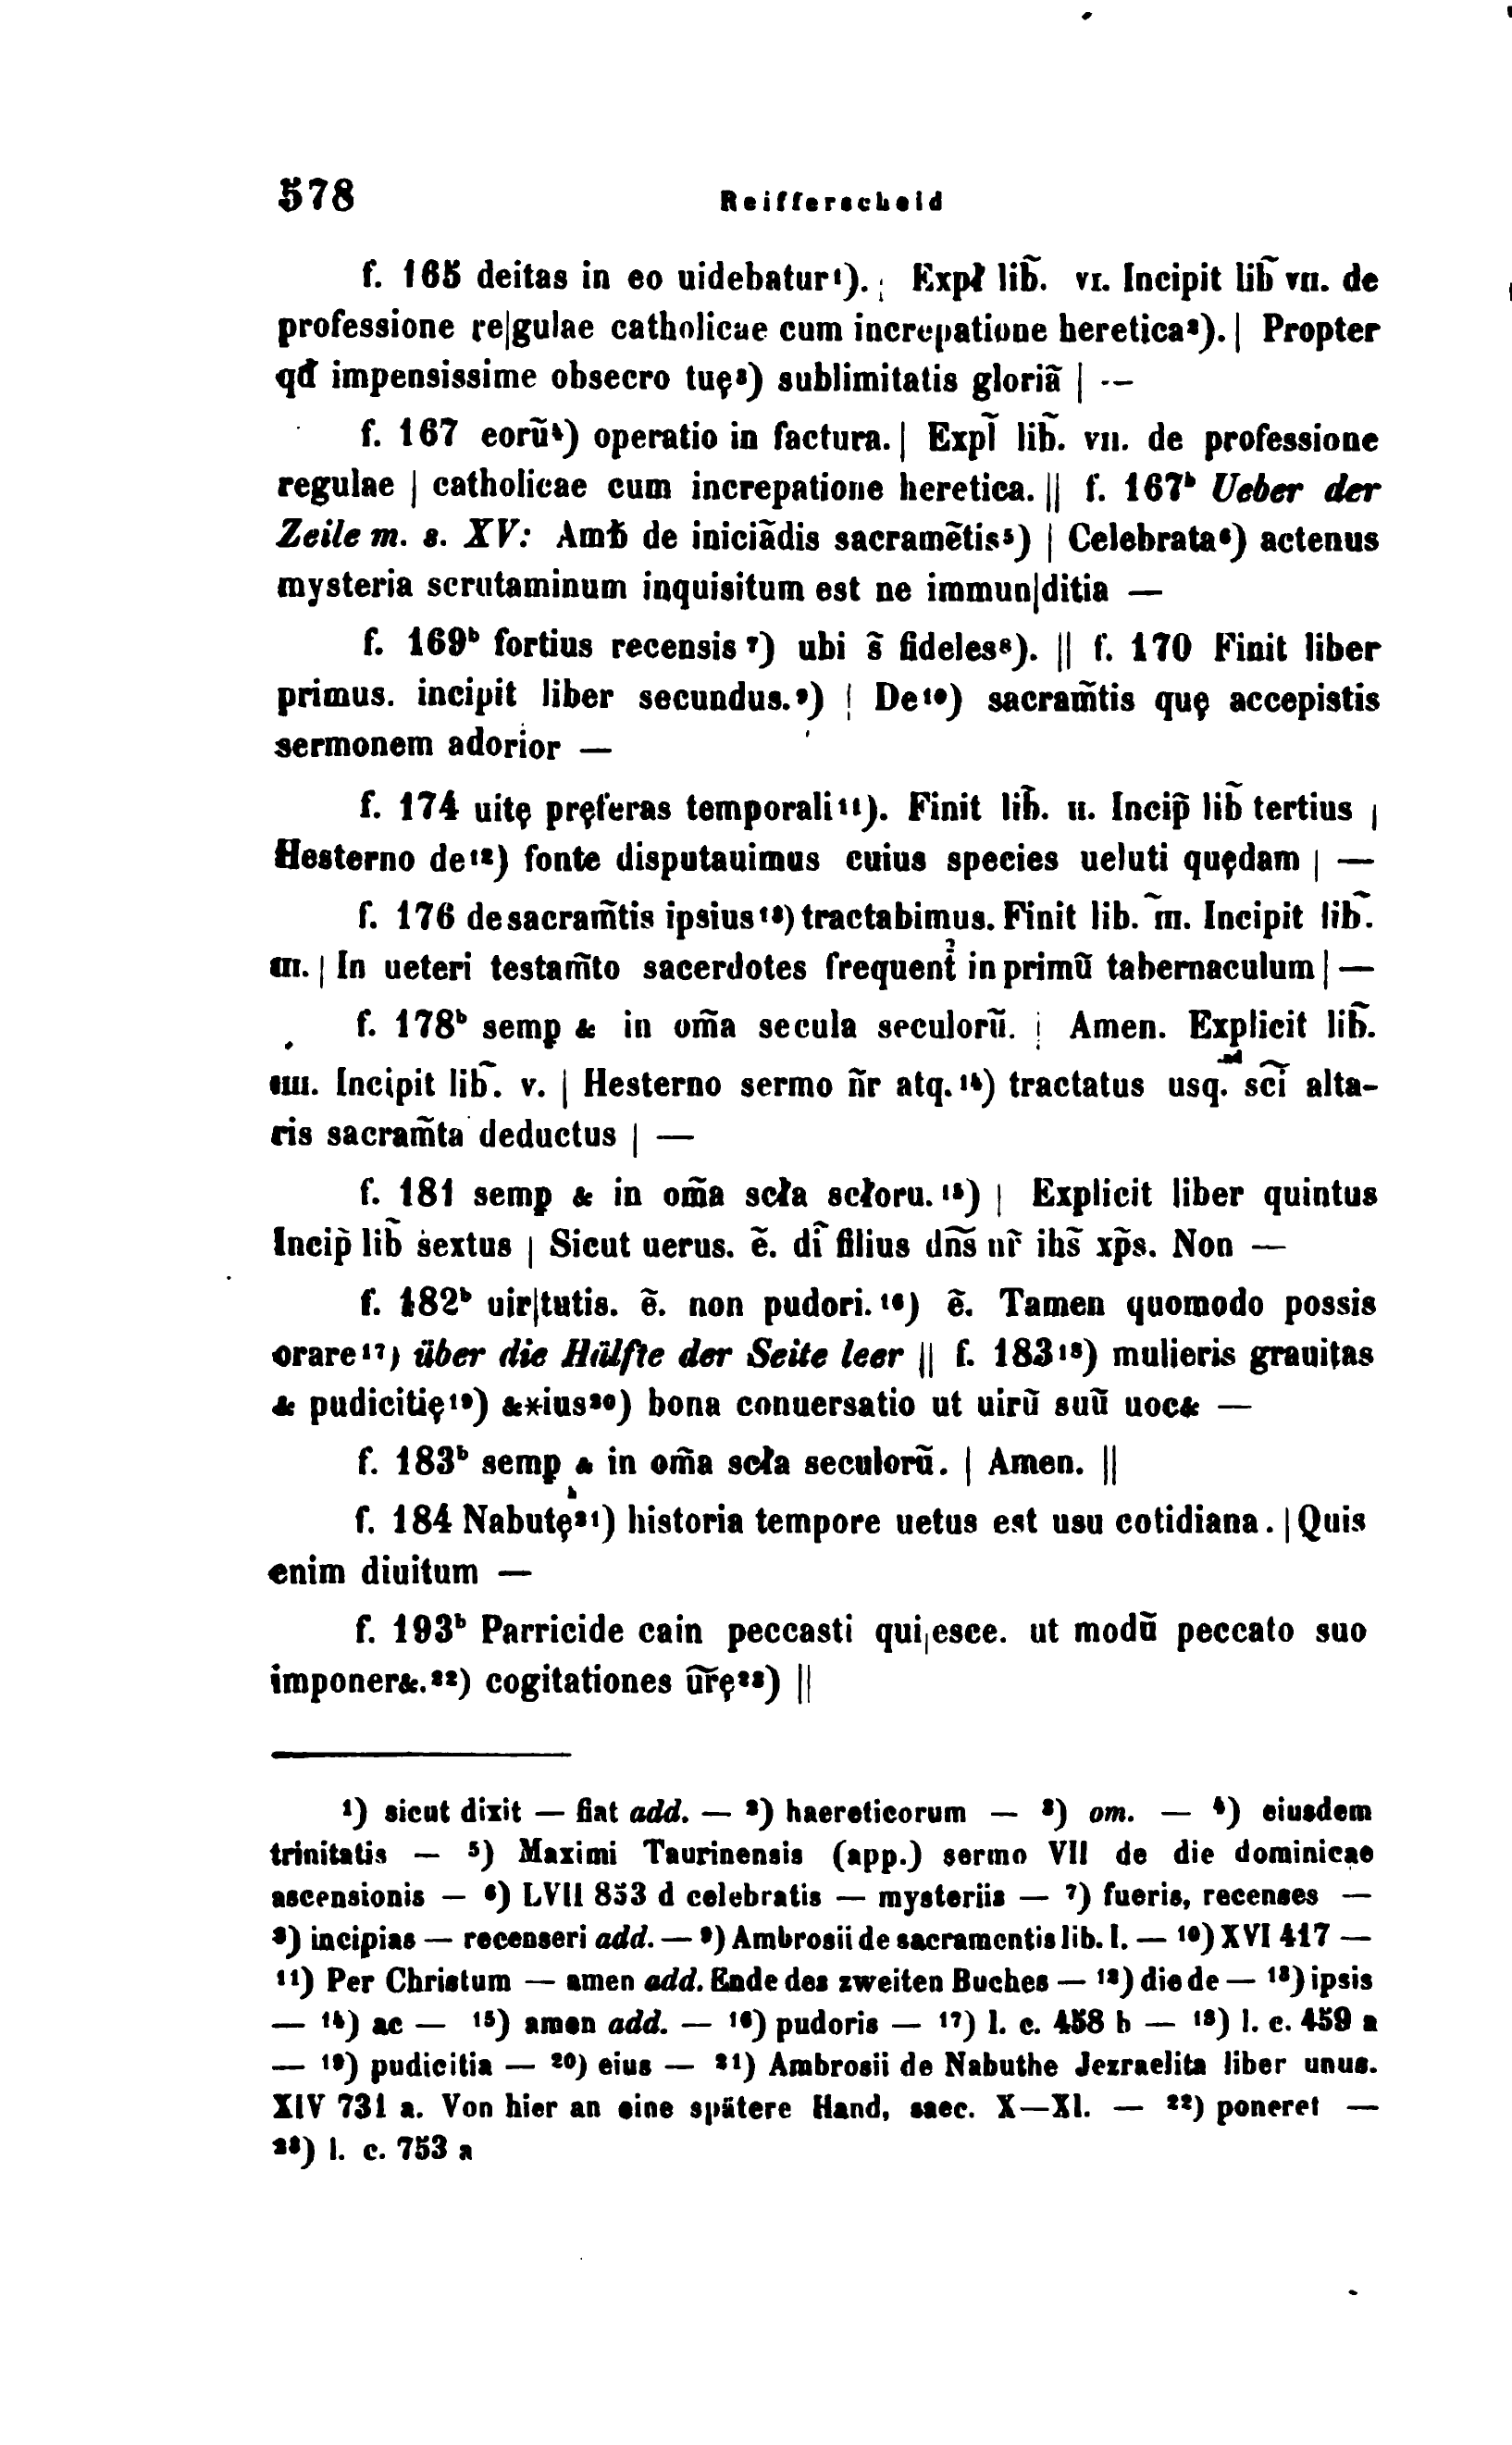 578 Reifferscheid
f. 165 deitas in eo uidebatur¹). | Expł lib̄. vi. Incipit lib̄ vii. de
professione re|gulae catholicae cum increpatione heretica²). | Propter
qđ impensissime obsecro tuę³) sublimitatis gloriā | —
f. 167 eorū⁴) operatio in factura. | Expl̄ lib̄. vii. de professione
regulae | catholicae cum increpatione heretica. || f. 167ᵇ Ueber der
Zeile m. s. XV: Amƀ de iniciādis sacramētis⁵) | Celebrata⁶) actenus
mysteria scrutaminum inquisitum est ne immun|ditia —
f. 169ᵇ fortius recensis⁷) ubi s̄ fideles⁸). || f. 170 Finit liber
primus. incipit liber secundus.⁹) | De¹⁰) sacram̄tis quę accepistis
sermonem adorior —
f. 174 uitę pręferas temporali¹¹). Finit lib̄. ii. Incip̄ lib̄ tertius |
Hesterno de¹²) fonte disputauimus cuius species ueluti quędam | —
f. 176 de sacram̄tis ipsius¹³) tractabimus. Finit lib. ̄iii. Incipit lib̄.
iiii. | In ueteri testam̄to sacerdotes frequent̉ in primū tabernaculum | —
f. 178ᵇ semꝑ & in om̄a secula seculorū. | Amen. Explicit lib̄.
iiii. Incipit lib̄. v. | Hesterno sermo n̄r atq.¹⁴) tractatus usq. ad sc̄i alta-
ris sacram̄ta deductus | —
f. 181 semꝑ & in om̄a scła scłoru.¹⁵) | Explicit liber quintus
Incip̄ lib̄ sextus | Sicut uerus. ē. dī filius dn̄s nr̄ ihs̄ xp̄s. Non —
f. 182ᵇ uir|tutis. ē. non pudori.¹⁶) ē. Tamen quomodo possis
orare¹⁷) über die Hülfte der Seite leer || f. 183¹⁸) mulieris grauitas
& pudicitię¹⁹) &*ius²⁰) bona conuersatio ut uirū suū uoc& —
f. 183ᵇ semꝑ & in om̄a scła seculorū. | Amen. ||
f. 184 Nabuthę²¹) historia tempore uetus est usu cotidiana. | Quis
enim diuitum —
f. 193ᵇ Parricide cain peccasti qui|esce. ut modū peccato suo
imponer&.²²) cogitationes ūr̄ę²³) ||
¹) sicut dixit — fiat add. — ²) haereticorum — ³) om. — ⁴) eiusdem
trinitatis — ⁵) Maximi Taurinensis (app.) sermo VII de die dominicae
ascensionis — ⁶) LVII 853 d celebratis — mysteriis — ⁷) fueris, recenses —
⁸) incipias — recenseri add. — ⁹) Ambrosii de sacramentis lib. I. — ¹⁰) XVI 417 —
¹¹) Per Christum — amen add. Ende des zweiten Buches — ¹²) die de — ¹³) ipsis
— ¹⁴) ac — ¹⁵) amen add. — ¹⁶) pudoris — ¹⁷) l. c. 458 b — ¹⁸) l. c. 459 a
— ¹⁹) pudicitia — ²⁰) eius — ²¹) Ambrosii de Nabuthe Jezraelita liber unus.
XIV 731 a. Von hier an eine spätere Hand, saec. X—XI. — ²²) poneret —
²³) l. c. 753 a